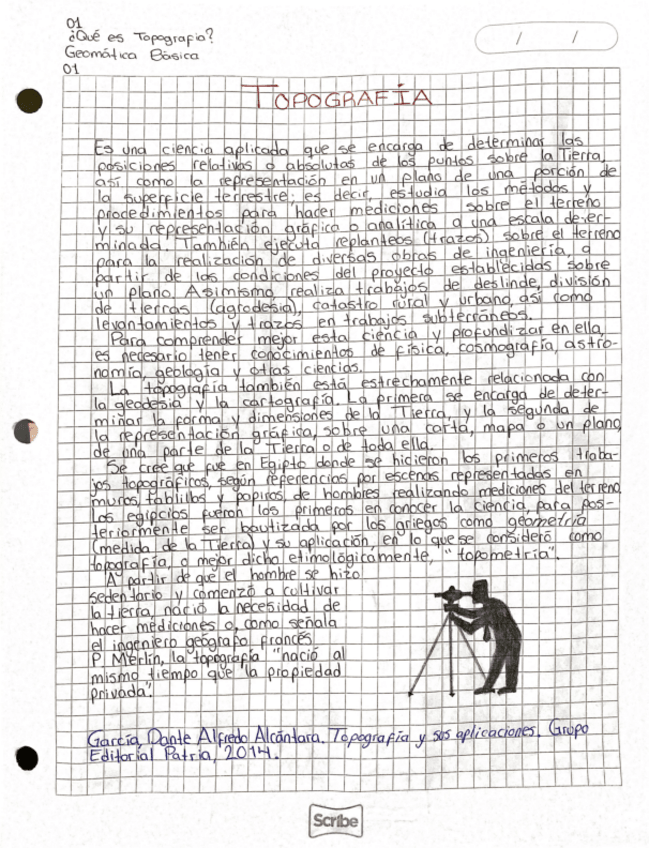 01
¿Qué es Topografía?
Geomática Básica
01
/ /
TOPOGRAFÍA
Es una ciencia aplicada que se encarga de determinar las
posiciones relativas o absolutas de los puntos sobre la Tierra,
así como la representación en un plano de una porción de
la superficie terrestre; es decir, estudia los métodos y
procedimientos para hacer mediciones sobre el terreno
y su representación gráfica o analítica a una escala deter-
minada. También ejecuta replanteos (trazos) sobre el terreno
para la realización de diversas obras de ingeniería, a
partir de las condiciones del proyecto establecidas sobre
un plano. Asimismo, realiza trabajos de deslinde, división
de tierras (agrodesia), catastro rural y urbano, así como
levantamientos y trazos en trabajos subterráneos.
Para comprender mejor esta ciencia y profundizar en ella,
es necesario tener conocimientos de física, cosmografía, astro-
nomía, geología y otras ciencias.
La topografía también está estrechamente relacionada con
la geodesia y la cartografía. La primera se encarga de deter-
minar la forma y dimensiones de la Tierra, y la segunda de
la representación gráfica, sobre una carta, mapa o un plano,
de una parte de la Tierra o de toda ella.
Se cree que fue en Egipto donde se hicieron los primeros traba-
jos topográficos, según referencias por escenas representadas en
muros, tablillas y papiros, de hombres realizando mediciones del terreno.
Los egipcios fueron los primeros en conocer la ciencia, para pos-
teriormente ser bautizada por los griegos como geometría
(medida de la Tierra) y su aplicación, en lo que se consideró como
topografía, o mejor dicho etimológicamente, "topometría".
A partir de que el hombre se hizo
sedentario y comenzó a cultivar
la tierra, nació la necesidad de
hacer mediciones o, como señala
el ingeniero geógrafo francés
P. Merlin, la topografía "nació al
mismo tiempo que la propiedad
privada".
García, Dante Alfredo Alcántara. Topografía y sus aplicaciones. Grupo
Editorial Patria, 2014.
Scribe